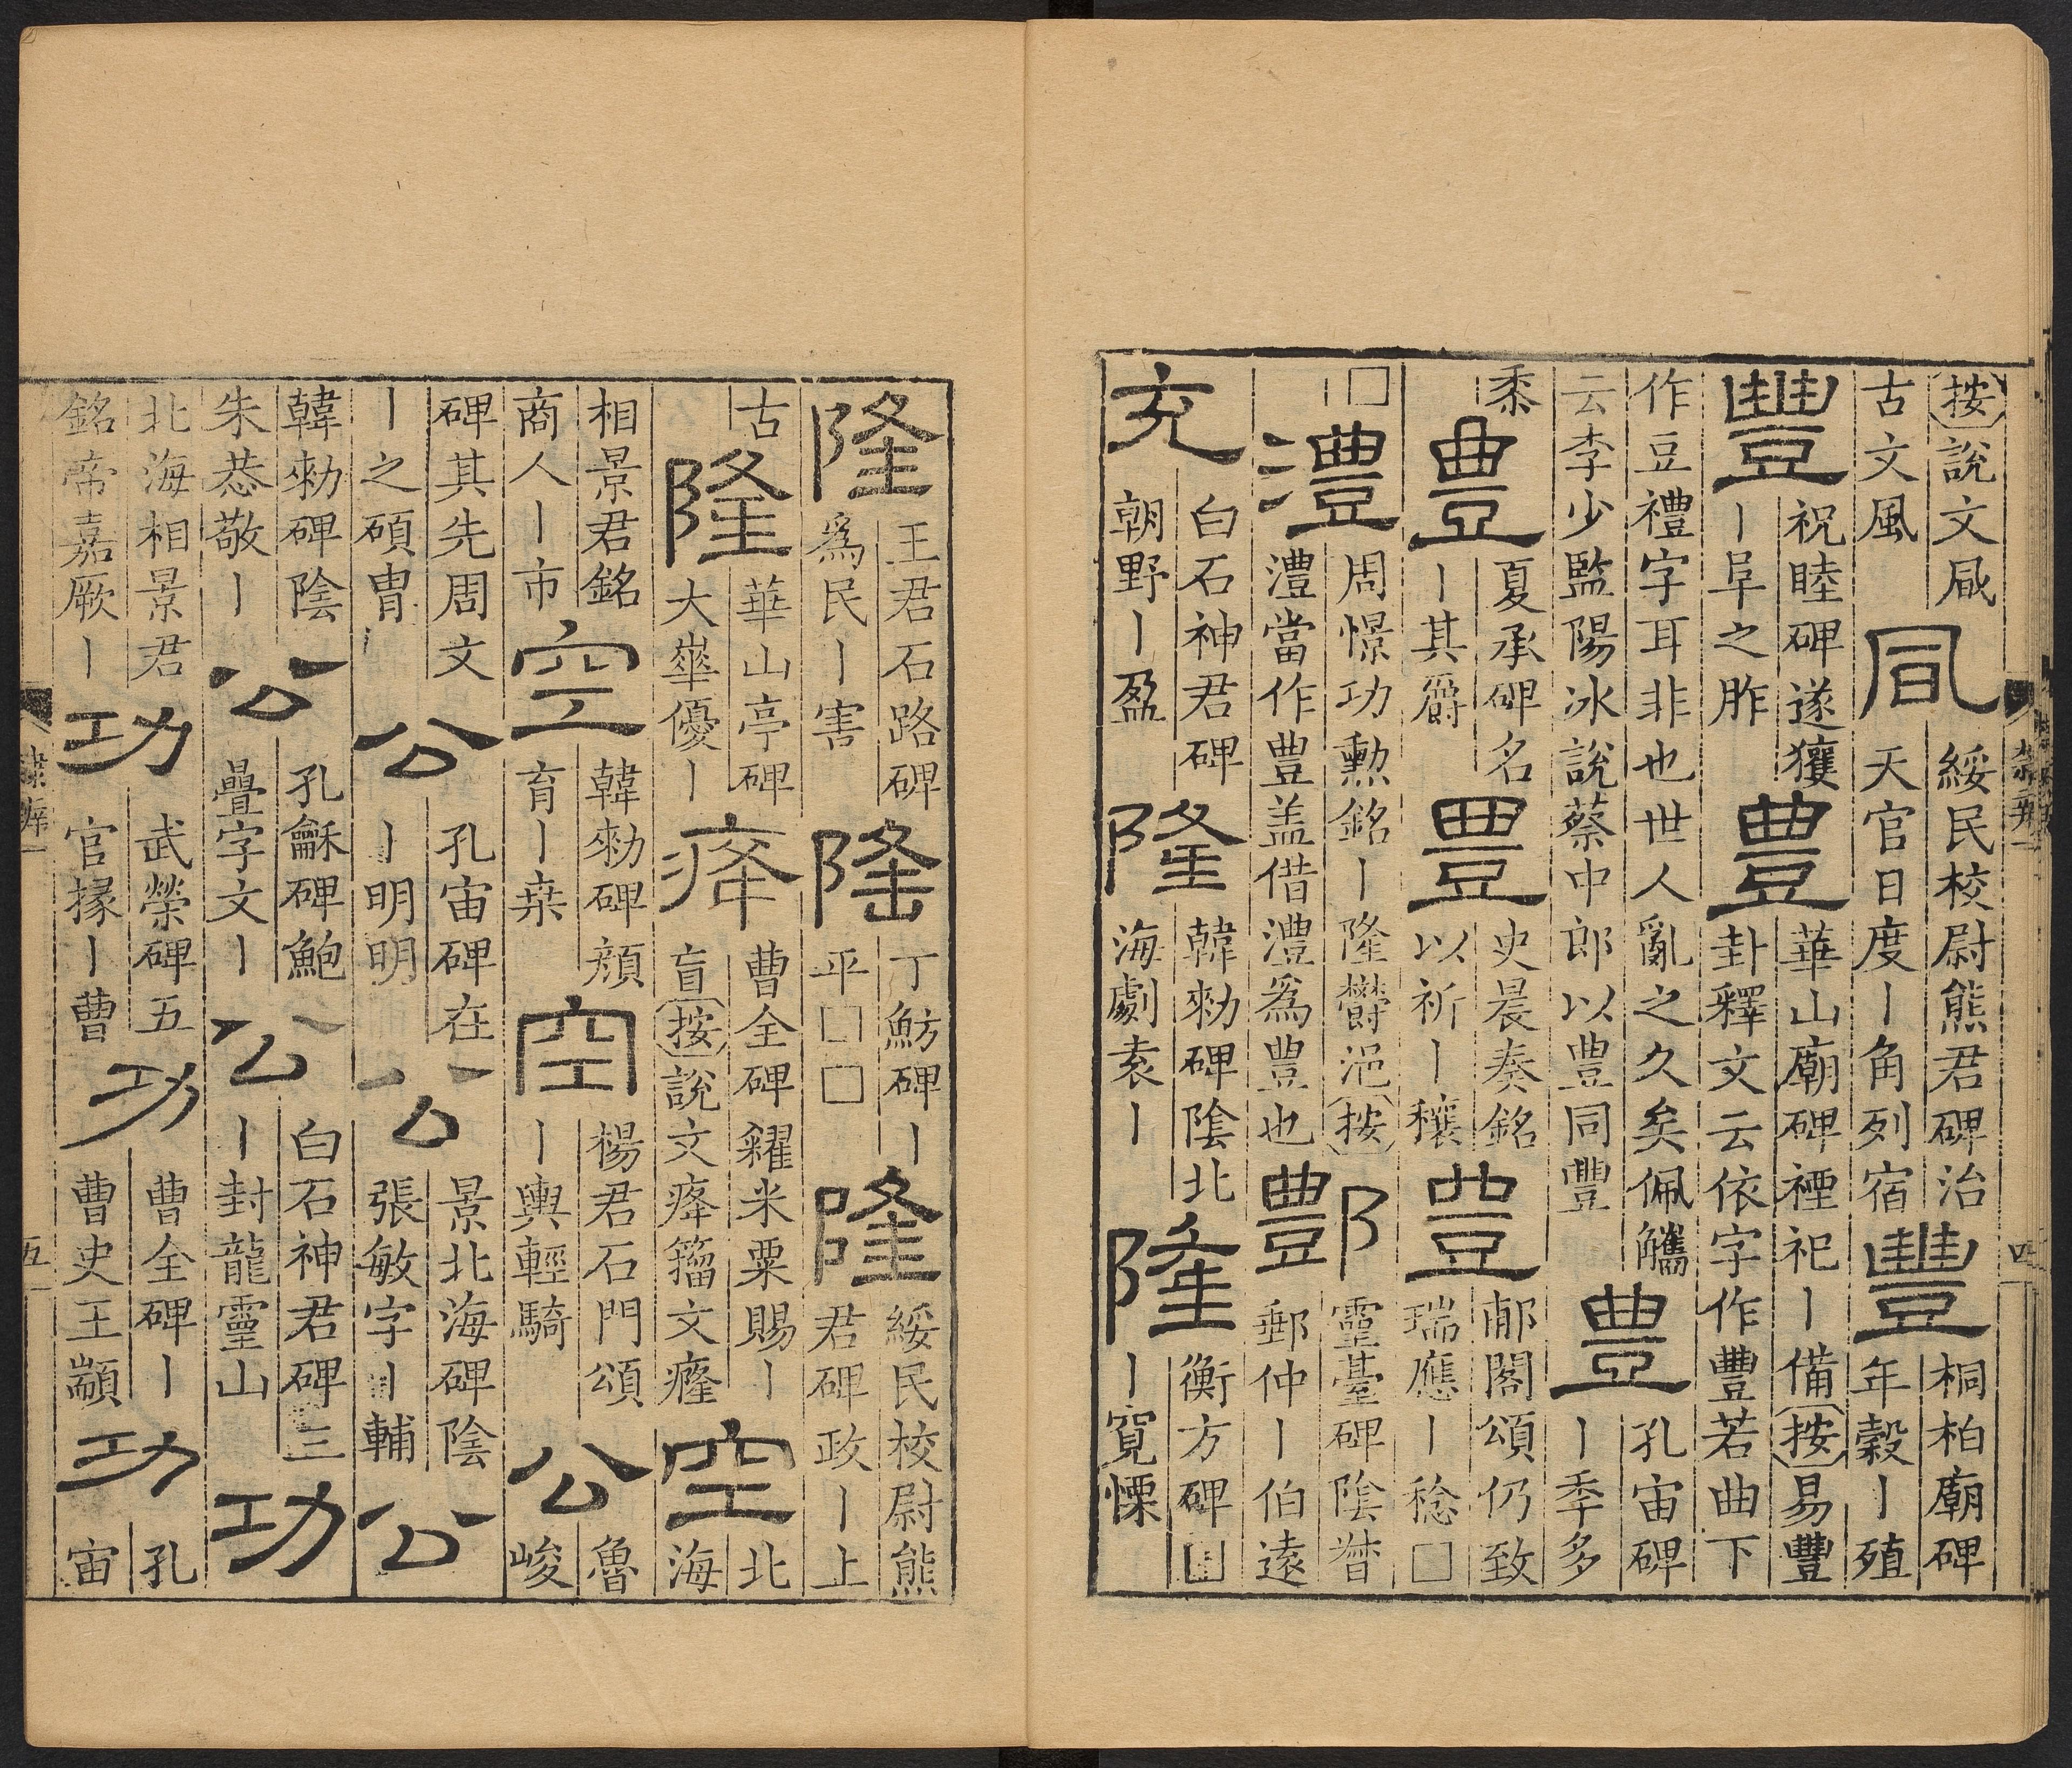 按說文凬
古文風
風
綏民校尉熊君碑治
天官日度丨角列宿
豐
桐柏廟碑
年穀丨殖
豐
祝睦碑遂獲
丨阜之胙
豊
華山廟碑禋祀丨備按易豐
卦釋文云依字作豐若曲下
作豆禮字耳非也世人亂之久矣佩觿
云李少監陽冰說蔡中郎以豊同豐
豊
孔宙碑
丨季多
黍
豊
夏承碑名
丨其爵
豊
史晨奏銘
以祈丨穰
豊
郙閣頌仍致
瑞應丨稔□
□
澧
周憬功勳銘丨隆鬱浥按
澧當作豊盖借澧爲豊也
酆
靈臺碑陰督
郵仲丨伯遠
充
白石神君碑
朝野丨盈
隆
韓勑碑陰北
海劇袁丨
隆
衡方碑□
丨寬慄
四
隆
王君石路碑
爲民丨害
隆
丁魴碑丨
平□□
隆
綏民校尉熊
君碑政丨上
古
隆
華山亭碑
大崋優丨
曹全碑糴米粟賜丨
盲按說文㾮籀文癃
空
北
海
相景君銘
商人丨市
空
韓勑碑顏
育丨桒
空
楊君石門頌
丨輿輕騎
公
魯
峻
碑其先周文
丨之碩胄
公
孔宙碑在
丨明明
公
景北海碑陰
張敏字丨輔
公
韓勑碑陰
朱恭敬丨
公
孔龢碑鮑
疊字文丨
公
白石神君碑三
丨封龍靈山
功
北海相景君
銘帝嘉厥丨
功
武榮碑五
官掾丨曹
功
曹全碑丨
曹史王顓
功
孔
宙
隸辨一
五